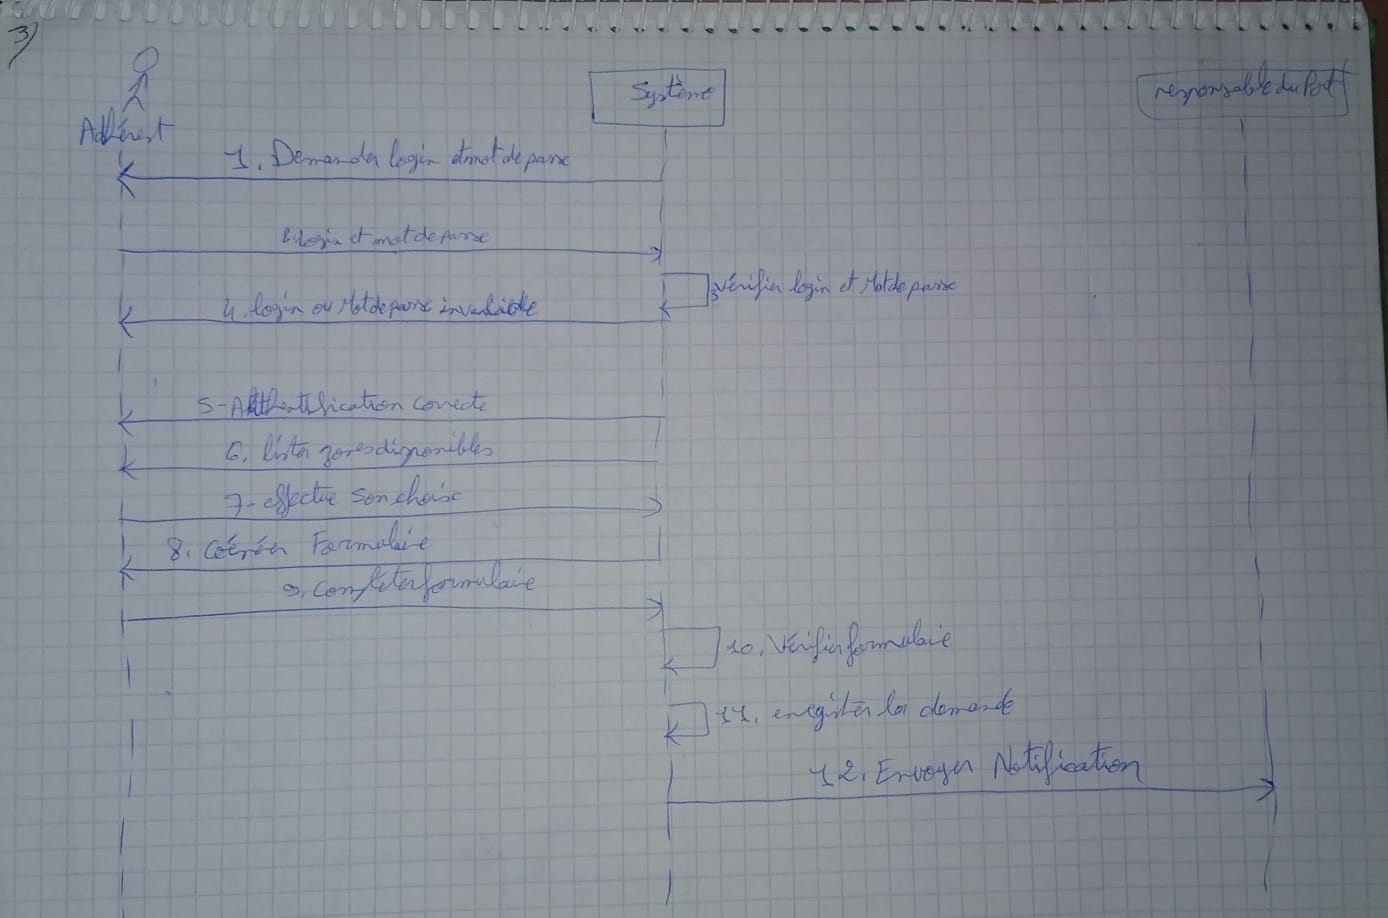 3)
Adhérent
Système
responsable du Port
1. Demander login et mot de passe
2. login et mot de passe
3 Vérifier login et Mot de passe
4. login ou Mot de passe invalide
5-Authentification correcte
6. lister zones disponibles
7- effectue son choix
8. Formulaire
9. completer formulaire
10. Vérifier formulaire
11. enregister la demande
12. Envoyer Notification